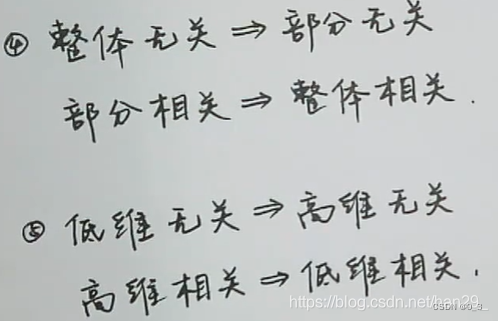 ④ 整体无关 ⇒ 部分无关
部分相关 ⇒ 整体相关.
⑤ 低维无关 ⇒ 高维无关
高维相关 ⇒ 低维相关.
https://blog.csdn.net/han29